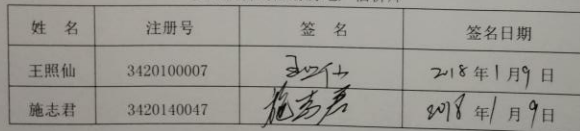 姓 名 注册号 签 名 签名日期
王照仙 3420100007 王照仙 2018年1月9日
施志君 3420140047 施志君 2018年1月9日